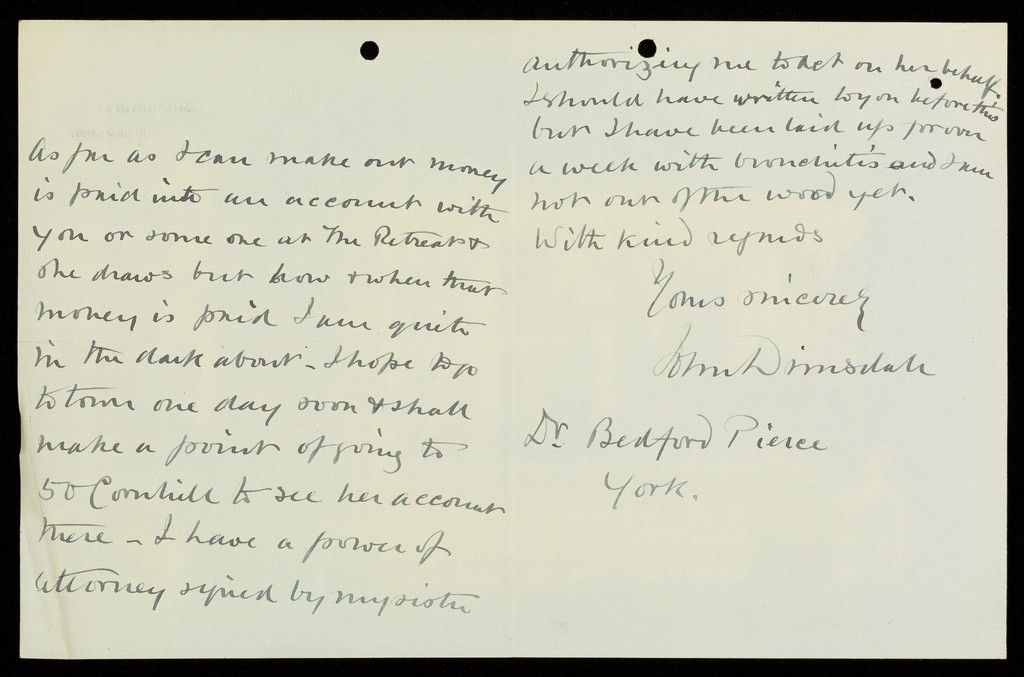 As far as I can make out money
is paid into an account with
you or some one at The Retreat &
she draws but how & when that
money is paid I am quite
in the dark about - I hope to go
to town one day soon & shall
make a point of going to
50 Cornhill to see her account
there - I have a power of
attorney signed by my sister
authorizing me to act on her behalf.
I should have written to you before this
but I have been laid up for over
a week with bronchitis and I am
not out of the wood yet.
With kind regards
Yours sincerely
John Dimsdale
Dr. Bedford Pierce
York.